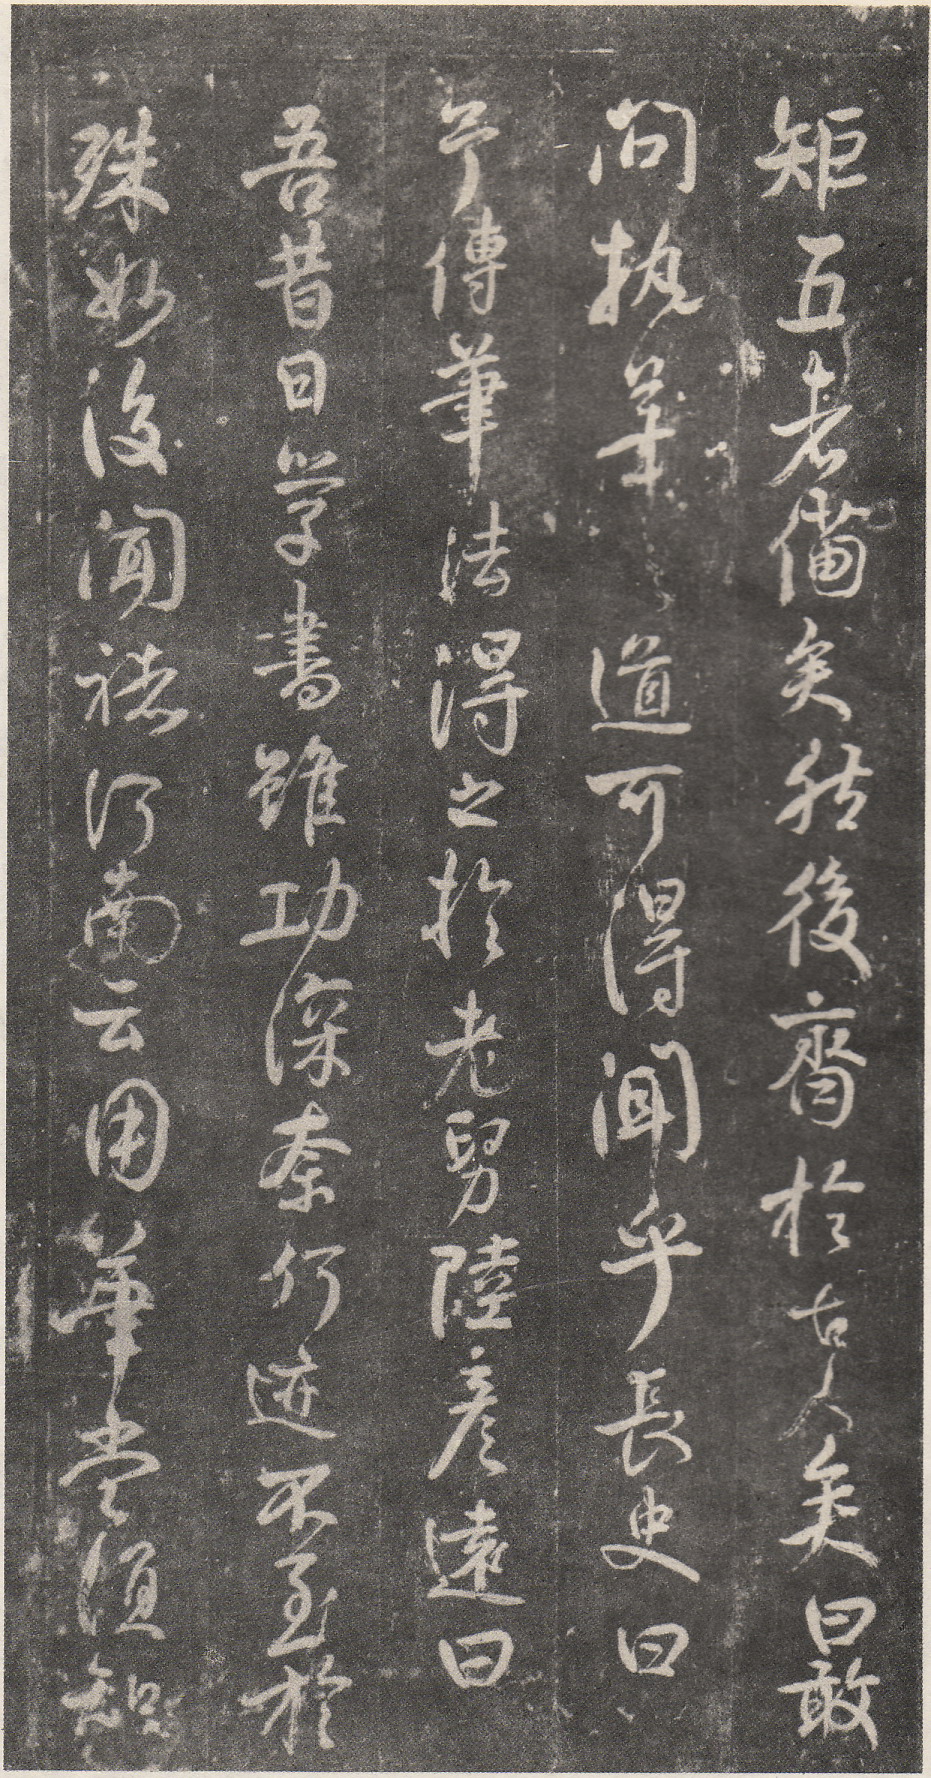 矩五者備矣然後齊於古人矣曰敢
問執筆之道可得聞乎長史曰
予傳筆法得之於老舅陸彦遠曰
吾昔日学書雖功深奈何迹不至於
殊妙後聞褚河南云用筆當須知